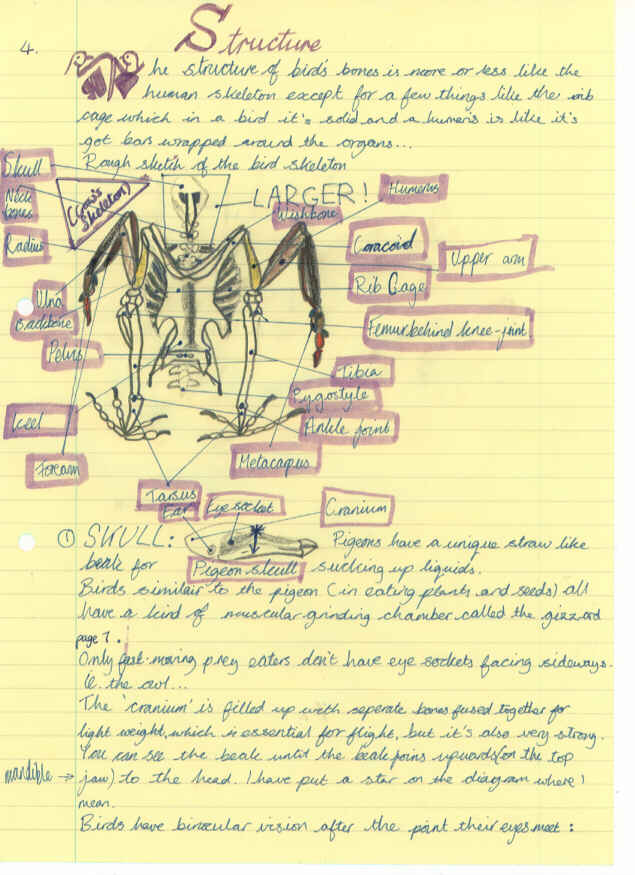 4.
Structure
The structure of bird's bones is more or less like the
human skeleton except for a few things like the rib
cage which in a bird it's solid and a humans is like it's
got bars wrapped around the organs...
Rough sketch of the bird skeleton
Skull
Neck bones
(Crow's Skeleton)
LARGER!
Wishbone
Humerus
Radius
Coracoid
Upper arm
Ulna
Rib Cage
Backbone
Femur behind knee-joint
Pelvis
Tibia
Pygostyle
Keel
Ankle joint
Foream
Metacapus
Tarsus
Ear
Eye socket
Cranium
① SKULL:
Pigeons have a unique straw like
beak for
Pigeon skull
sucking up liquids.
Birds similair to the pigeon (in eating plants and seeds) all
have a kind of muscular grinding chamber called the gizzard
page 7.
Only fast-moving prey eaters don't have eye sockets facing sideways.
ie the owl...
The 'cranium' is filled up with seperate bones fused together for
light weight, which is essential for flight, but it's also very strong.
You can see the beak until the beak joins upwards (on the top
mandible → jaw) to the head. I have put a star on the diagram where I
mean.
Birds have binocular vision after the point their eyes meet :